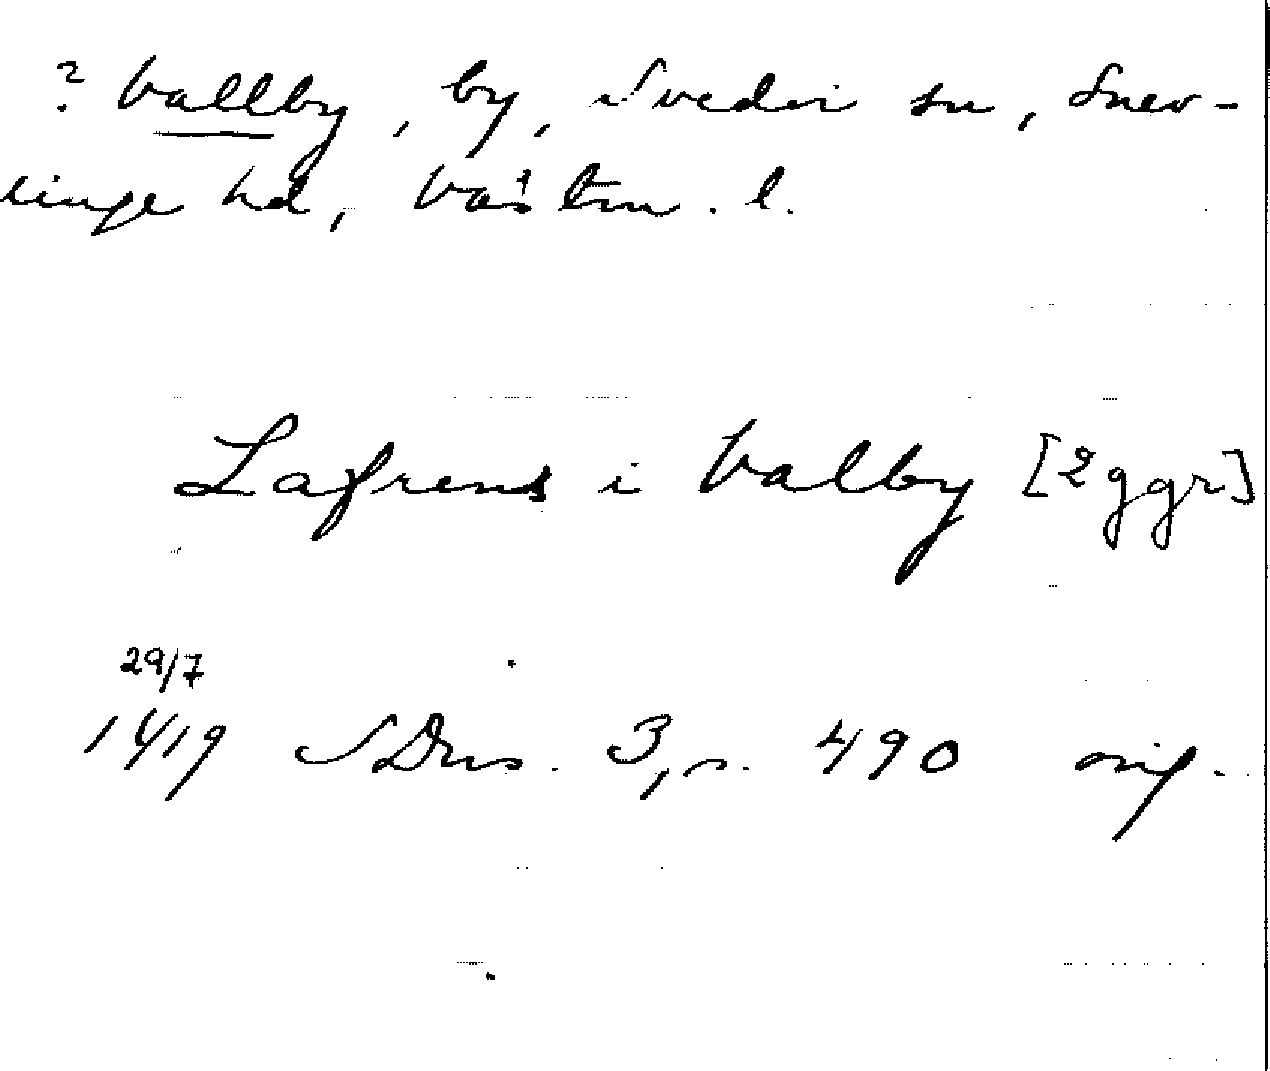 ? Vallby, by, Svedvi sn, Snev-
linge hd, Västm. l.
Lafrens i Valby [2 ggr]
29/7
1419 SDns. 3, s. 490 orig.